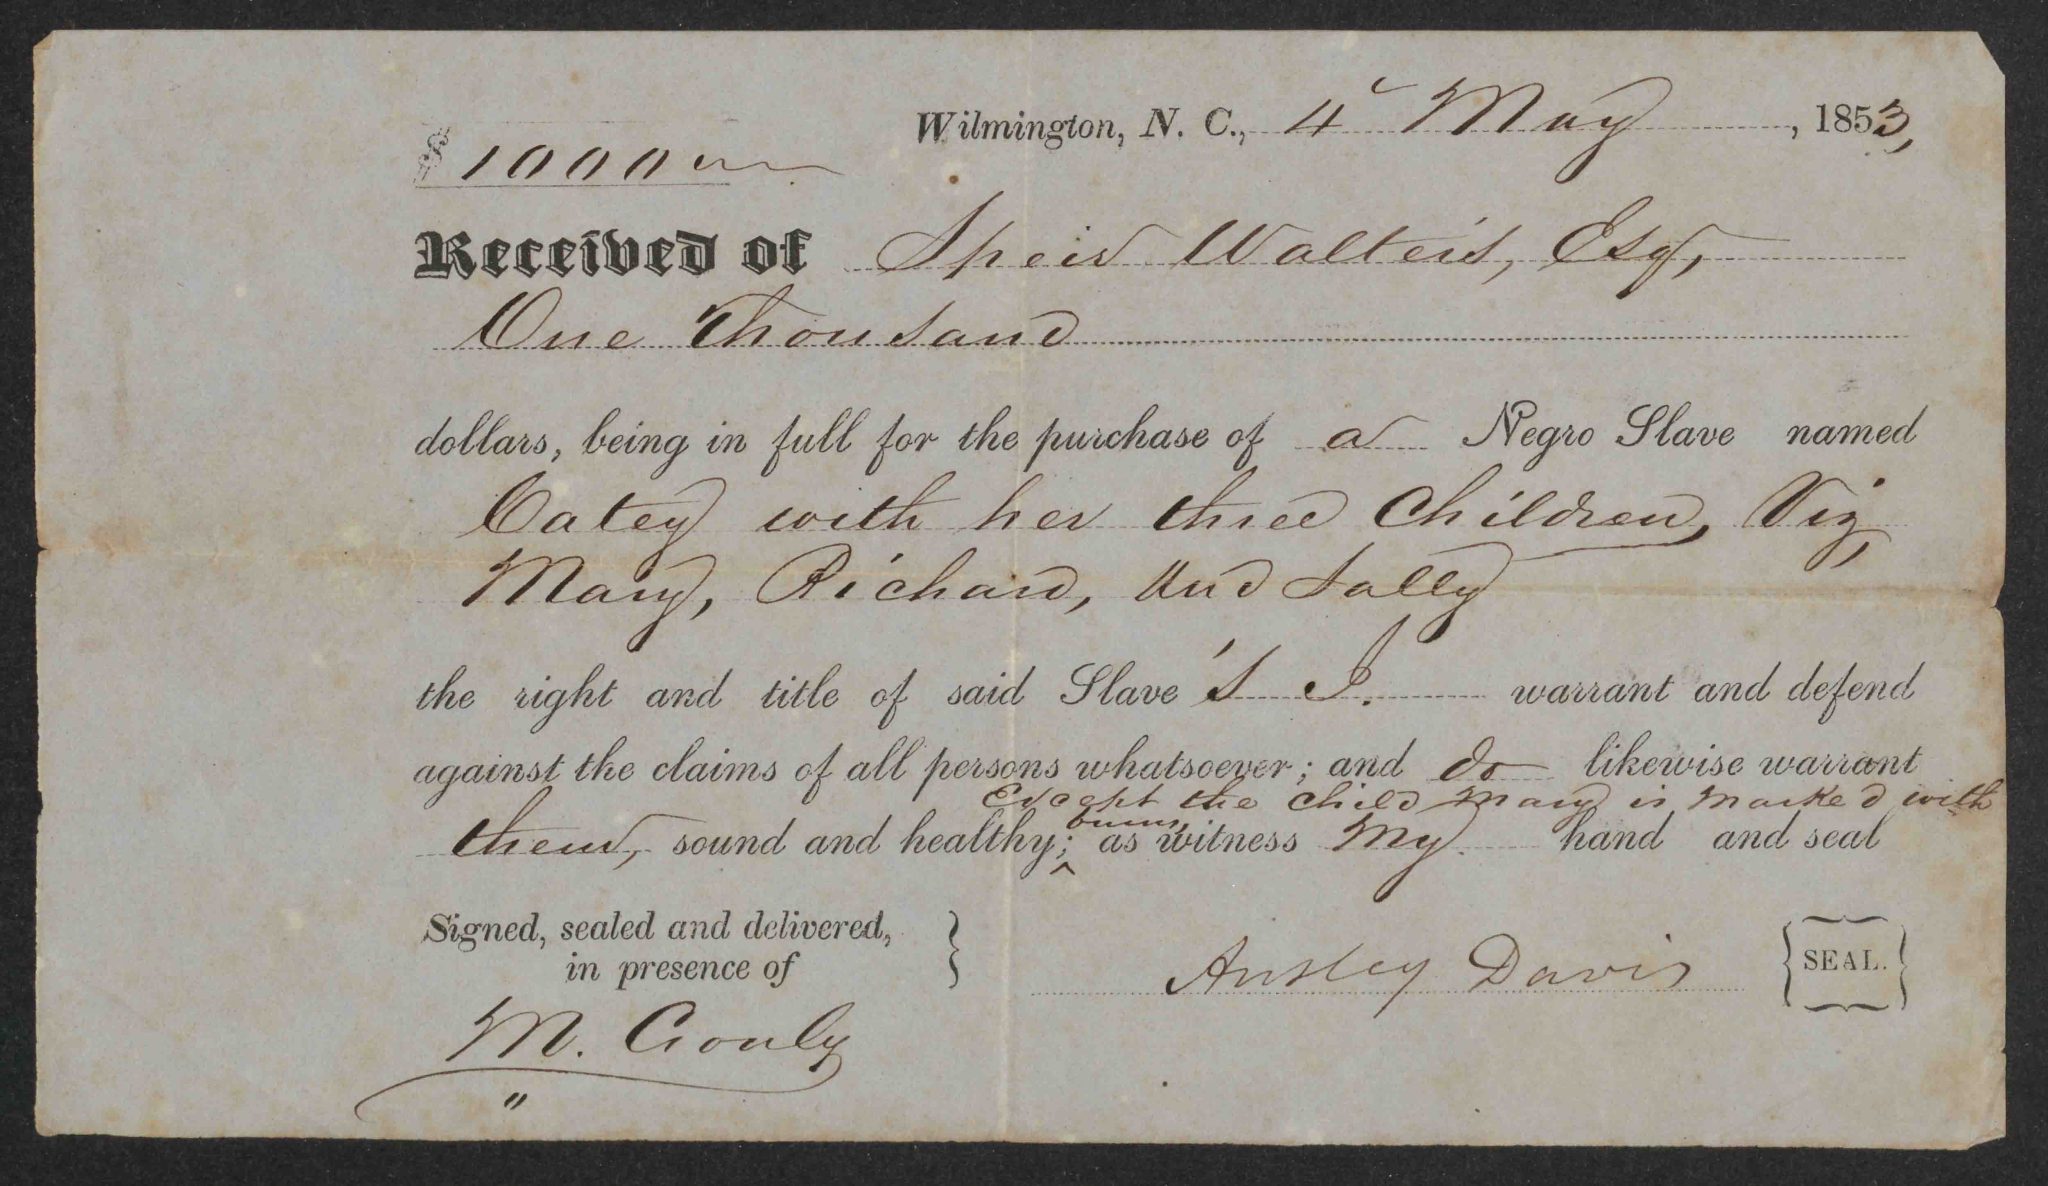 Wilmington, N. C., 4 May, 1853,
$ 1000
Received of Speir Walters, Esq,
One Thousand
dollars, being in full for the purchase of a Negro Slave named
Catey with her three Children, Viz,
Mary, Richard, And Sally
the right and title of said Slave's I. warrant and defend
against the claims of all persons whatsoever; and do likewise warrant
Except the child Mary is marked with
burns,
them, sound and healthy; ^ as witness My hand and seal
Signed, sealed and delivered,
in presence of
Ansley Davis SEAL.
M. Cronly